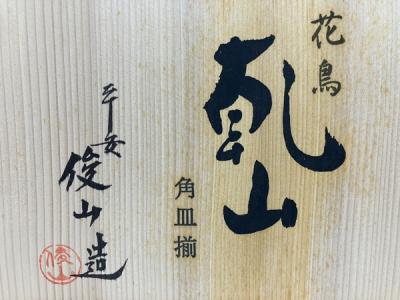 花鳥
乾山
角皿揃
平安
俊山造
俊山